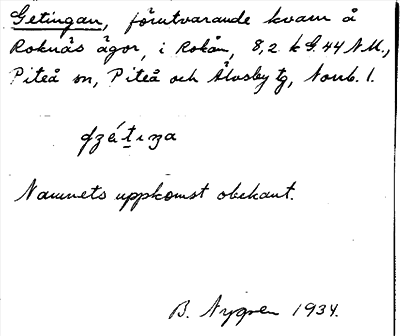 Getingan, förutvarande kvarn å
Roknäs ägor, i Rokån, 8,2 k G. 44 N.M.,
Piteå sn, Piteå och Älvsby tg, Norrb. l.
Namnets uppkomst obekant.
B. Nygren 1934.